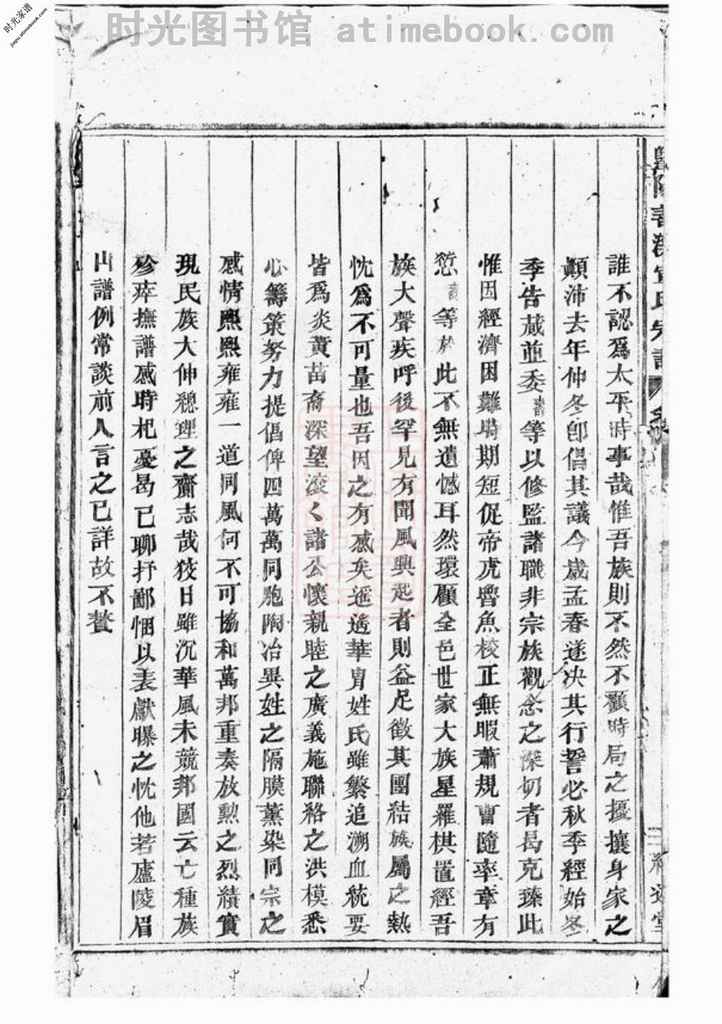 时光图书馆 atimebook.com
时光家谱
誰不認爲太平時事哉惟吾族則不然不顧時局之擾攘身家之
顚沛去年仲冬卽倡其議今歲孟春遂決其行誓必秋季經始冬
季告蕆並委書等以修監諸職非宗族觀念之深切者曷克臻此
惟因經濟困難時期短促帝虎魯魚校正無暇蕭規曹隨率章有
愆書等於此不無遺憾耳然環顧全邑世家大族星羅棋置經吾
族大聲疾呼後罕見有聞風興起者則益足徵其團結族屬之熱
忱爲不可量也吾因之有感矣遙遙華胄姓氏雖繁追溯血統要
皆爲炎黃苗裔深望滾く諸公懷親睦之廣義施聯絡之洪模悉
心籌策努力提倡俾四萬萬同胞陶冶異姓之隔膜薰染同宗之
感情熙熙雍雍一道同風何不可協和萬邦重奏放勲之烈績實
現民族大伸總理之齎志哉茲日雖沉華風未競邦國云亡種族
殄瘁撫譜感時杞憂曷已聊抒鄙悃以表獻曝之忱他若廬陵眉
山譜例常談前人言之已詳故不贅